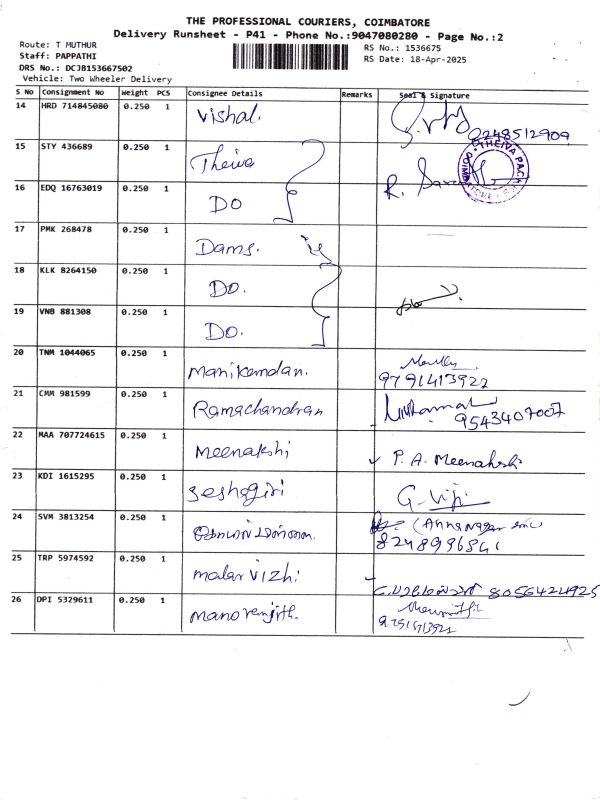 THE PROFESSIONAL COURIERS, COIMBATORE
Delivery Runsheet - P41 - Phone No.:9047080280 - Page No.:2
Route: T MUTHUR
Staff: PAPPATHI
DRS No.: DCJB153667502
Vehicle: Two Wheeler Delivery
RS No.: 1536675
RS Date: 18-Apr-2025
S No Consignment No Weight PCS Consignee Details Remarks Seal & Signature
14 HRD 714845080 0.250 1 Vishal. 8248512909
15 STY 436689 0.250 1 Theiva
THEIVA PACK
16 EDQ 16763019 0.250 1 DO R.
17 PMK 268478 0.250 1 Dams.
18 KLK 8264150 0.250 1 Do.
19 VNB 881308 0.250 1 Do.
20 TNM 1044065 0.250 1 Manikandan.
9791413922
21 CMM 981599 0.250 1 Ramachandran
9543407007
22 MAA 707724615 0.250 1 Meenakshi P. A. Meenakshi
23 KDI 1615295 0.250 1 Seshagiri G. Viji
24 SVM 3813254 0.250 1 (Annanagar
8248996841
25 TRP 5974592 0.250 1 malar vizhi
8056424925
26 DPI 5329611 0.250 1 manoranjith.